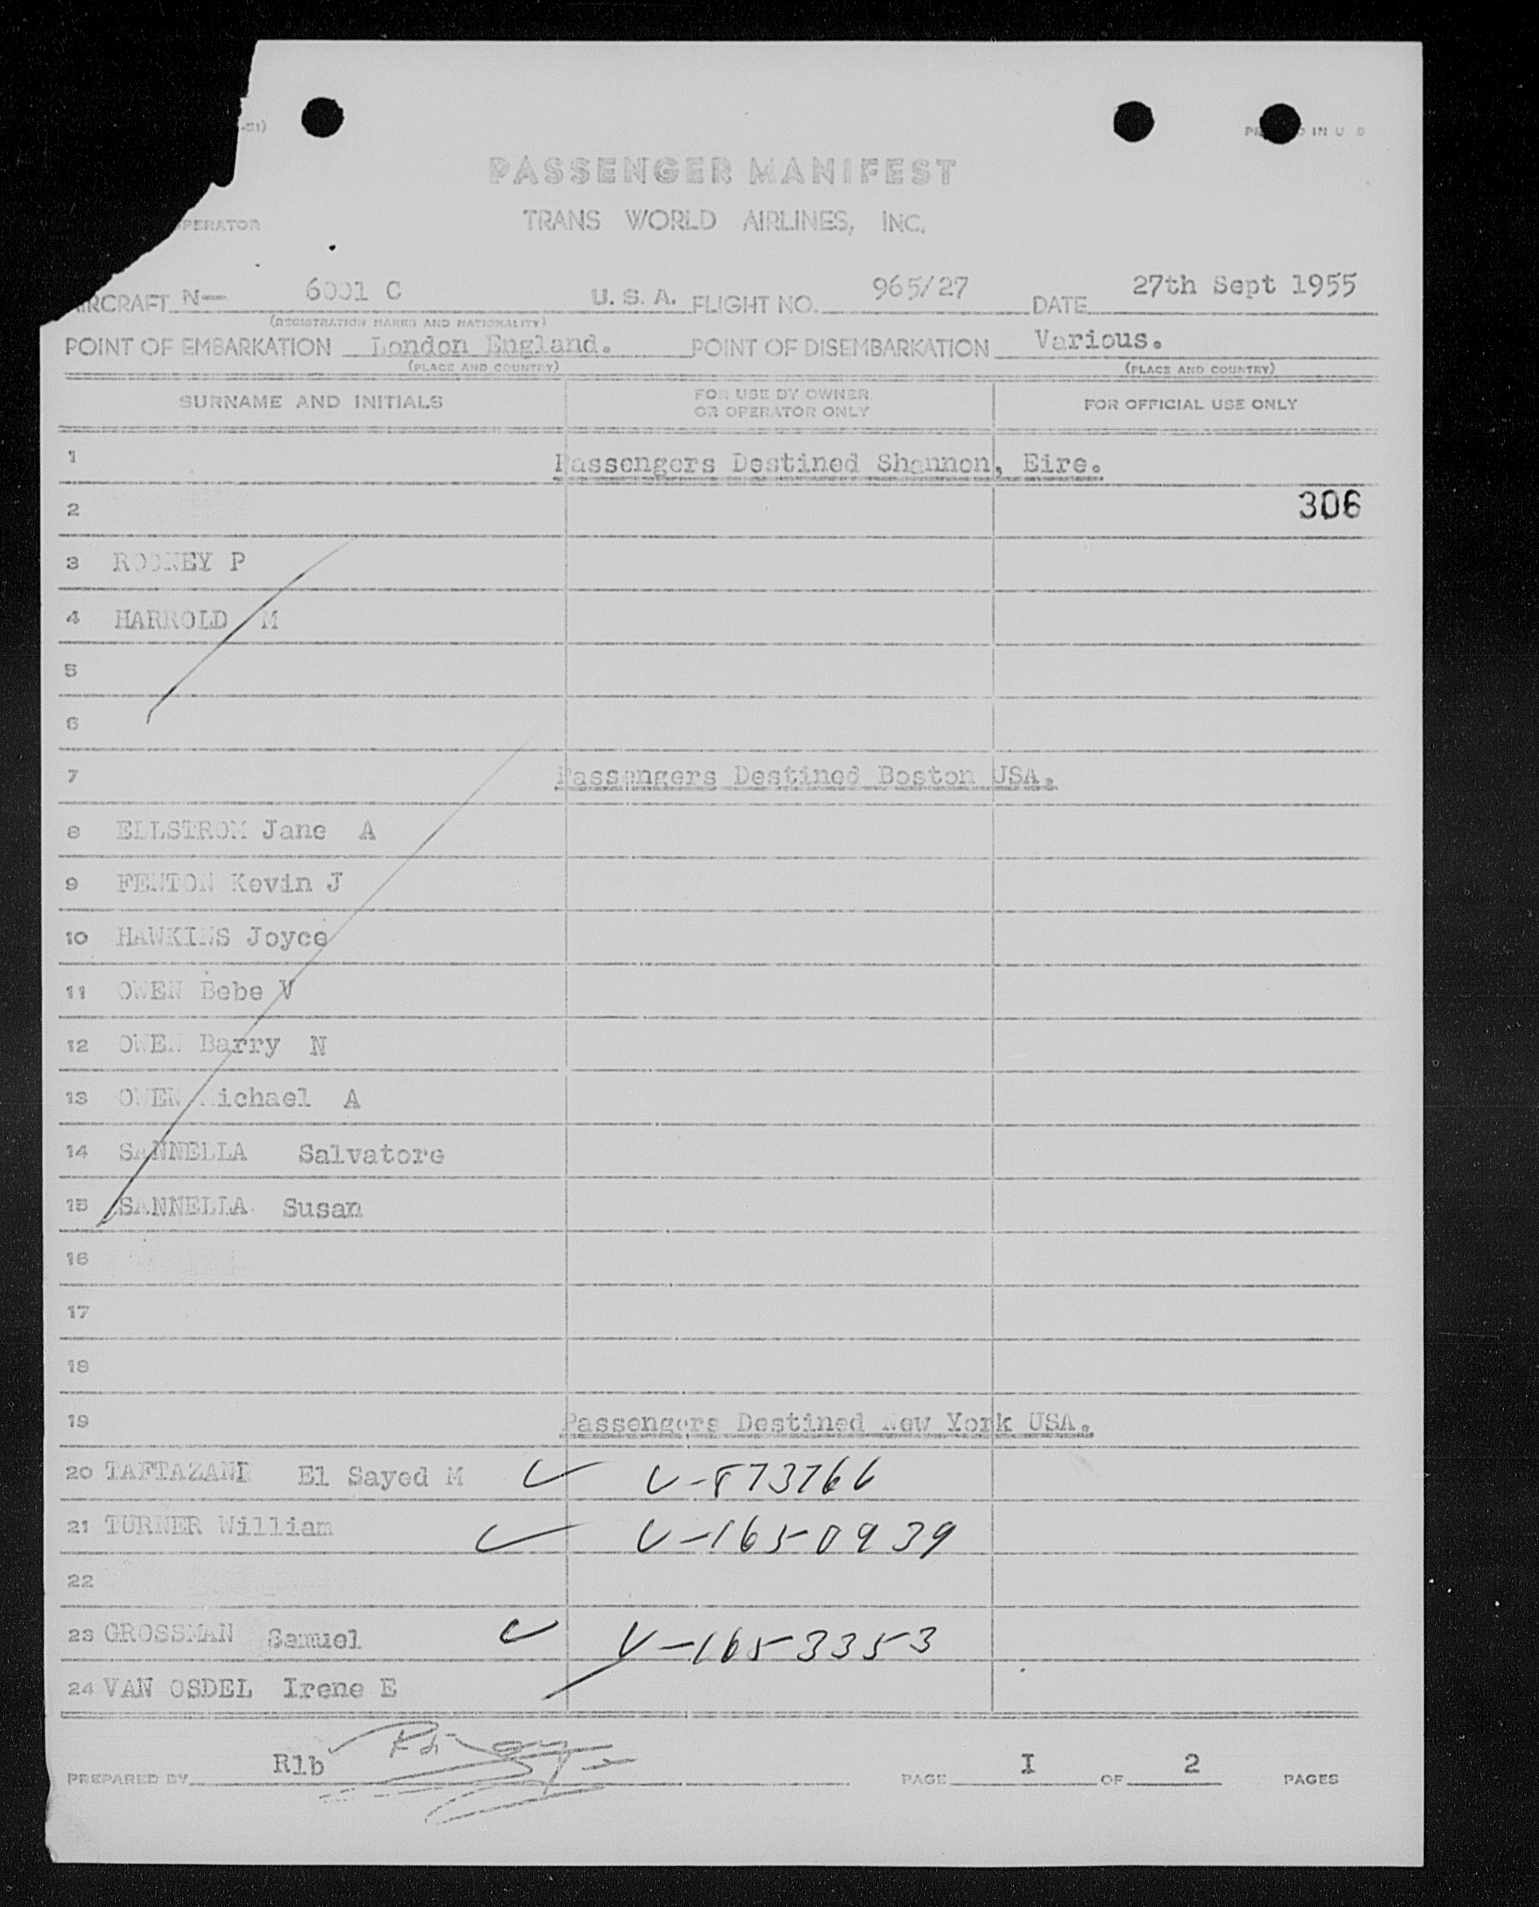 -51)
IN U S
PASSENGER MANIFEST
TRANS WORLD AIRLINES, INC.
OPERATOR
AIRCRAFT N— 6001 C U. S. A. FLIGHT NO. 965/27 DATE 27th Sept 1955
(REGISTRATION MARKS AND NATIONALITY)
POINT OF EMBARKATION London England. POINT OF DISEMBARKATION Various.
(PLACE AND COUNTRY) (PLACE AND COUNTRY)
SURNAME AND INITIALS FOR USE BY OWNER OR OPERATOR ONLY FOR OFFICIAL USE ONLY
1 Passengers Destined Shannon, Eire.
2 306
3 ROONEY P
4 HARROLD M
5
6
7 Passengers Destined Boston USA.
8 ELLSTROM Jane A
9 FENTON Kevin J
10 HAWKINS Joyce
11 OWEN Bebe V
12 OWEN Barry N
13 OWEN Michael A
14 SANNELLA Salvatore
15 SANNELLA Susan
16
17
18
19 Passengers Destined New York USA.
20 TAFTAZANI El Sayed M V-873766
21 TURNER William V-1650939
22
23 GROSSMAN Samuel V-1653353
24 VAN OSDEL Irene E
PREPARED BY Rlb PAGE I OF 2 PAGES